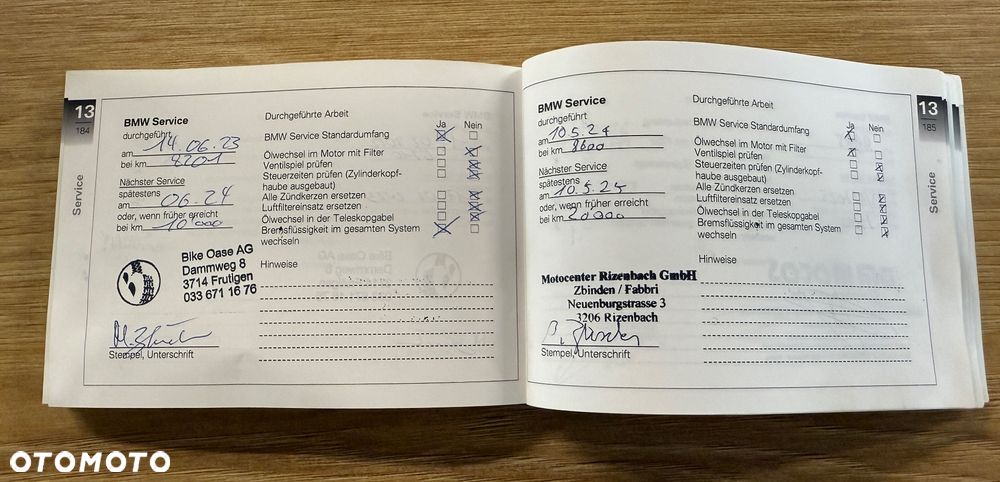 13
184
Service
BMW Service
durchgeführt
am 14.06.23
bei km 8201
Nächster Service
spätestens
am 06.24
oder, wenn früher erreicht
bei km 10'000
Bike Oase AG
Dammweg 8
3714 Frutigen
033 671 16 76
Stempel, Unterschrift
Durchgeführte Arbeit
Ja Nein
BMW Service Standardumfang
Ölwechsel im Motor mit Filter
Ventilspiel prüfen
Steuerzeiten prüfen (Zylinderkopf-
haube ausgebaut)
Alle Zündkerzen ersetzen
Luftfiltereinsatz ersetzen
Ölwechsel in der Teleskopgabel
Bremsflüssigkeit im gesamten System
wechseln
Hinweise
BMW Service
durchgeführt
am 10.5.24
bei km 8600
Nächster Service
spätestens
am 10.5.25
oder, wenn früher erreicht
bei km 20000
Motocenter Rizenbach GmbH
Zbinden / Fabbri
Neuenburgstrasse 3
3206 Rizenbach
Stempel, Unterschrift
Durchgeführte Arbeit
Ja Nein
BMW Service Standardumfang
Ölwechsel im Motor mit Filter
Ventilspiel prüfen
Steuerzeiten prüfen (Zylinderkopf-
haube ausgebaut)
Alle Zündkerzen ersetzen
Luftfiltereinsatz ersetzen
Ölwechsel in der Teleskopgabel
Bremsflüssigkeit im gesamten System
wechseln
Hinweise
13
185
Service
OTOMOTO